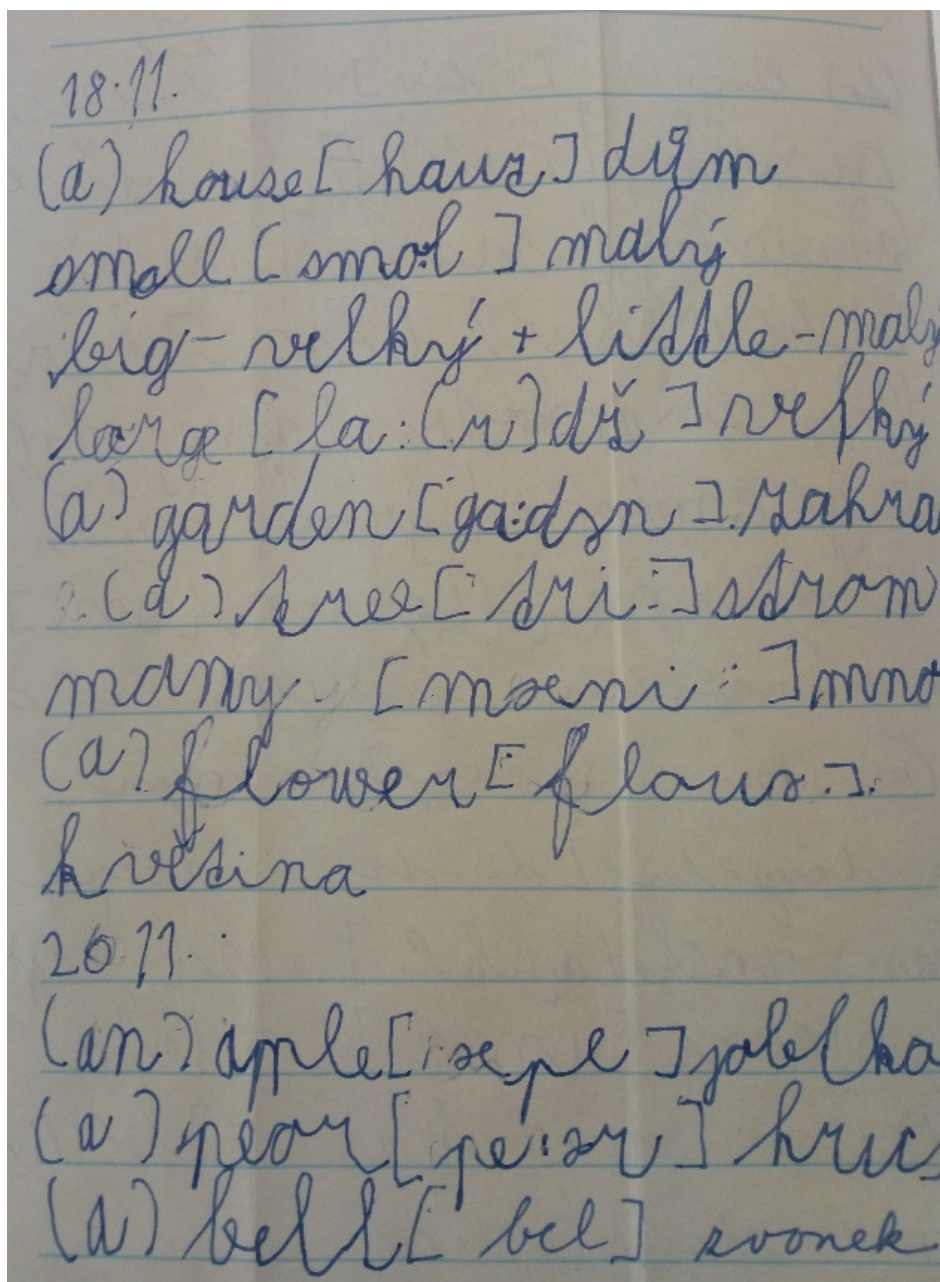 18.11.
(a) house [hauz] dům
small [smo:l] malý
big - velký + little - malý
large [la:(r)dž] velký
(a) garden [ga:dən] zahra
(a) tree [tri:] strom
many [mæni:] mno
(a) flower [flauə]
květina
20.11.
(an) apple [æpl] jablko
(a) pear [pe:ər] hruš
(a) bell [bel] zvonek